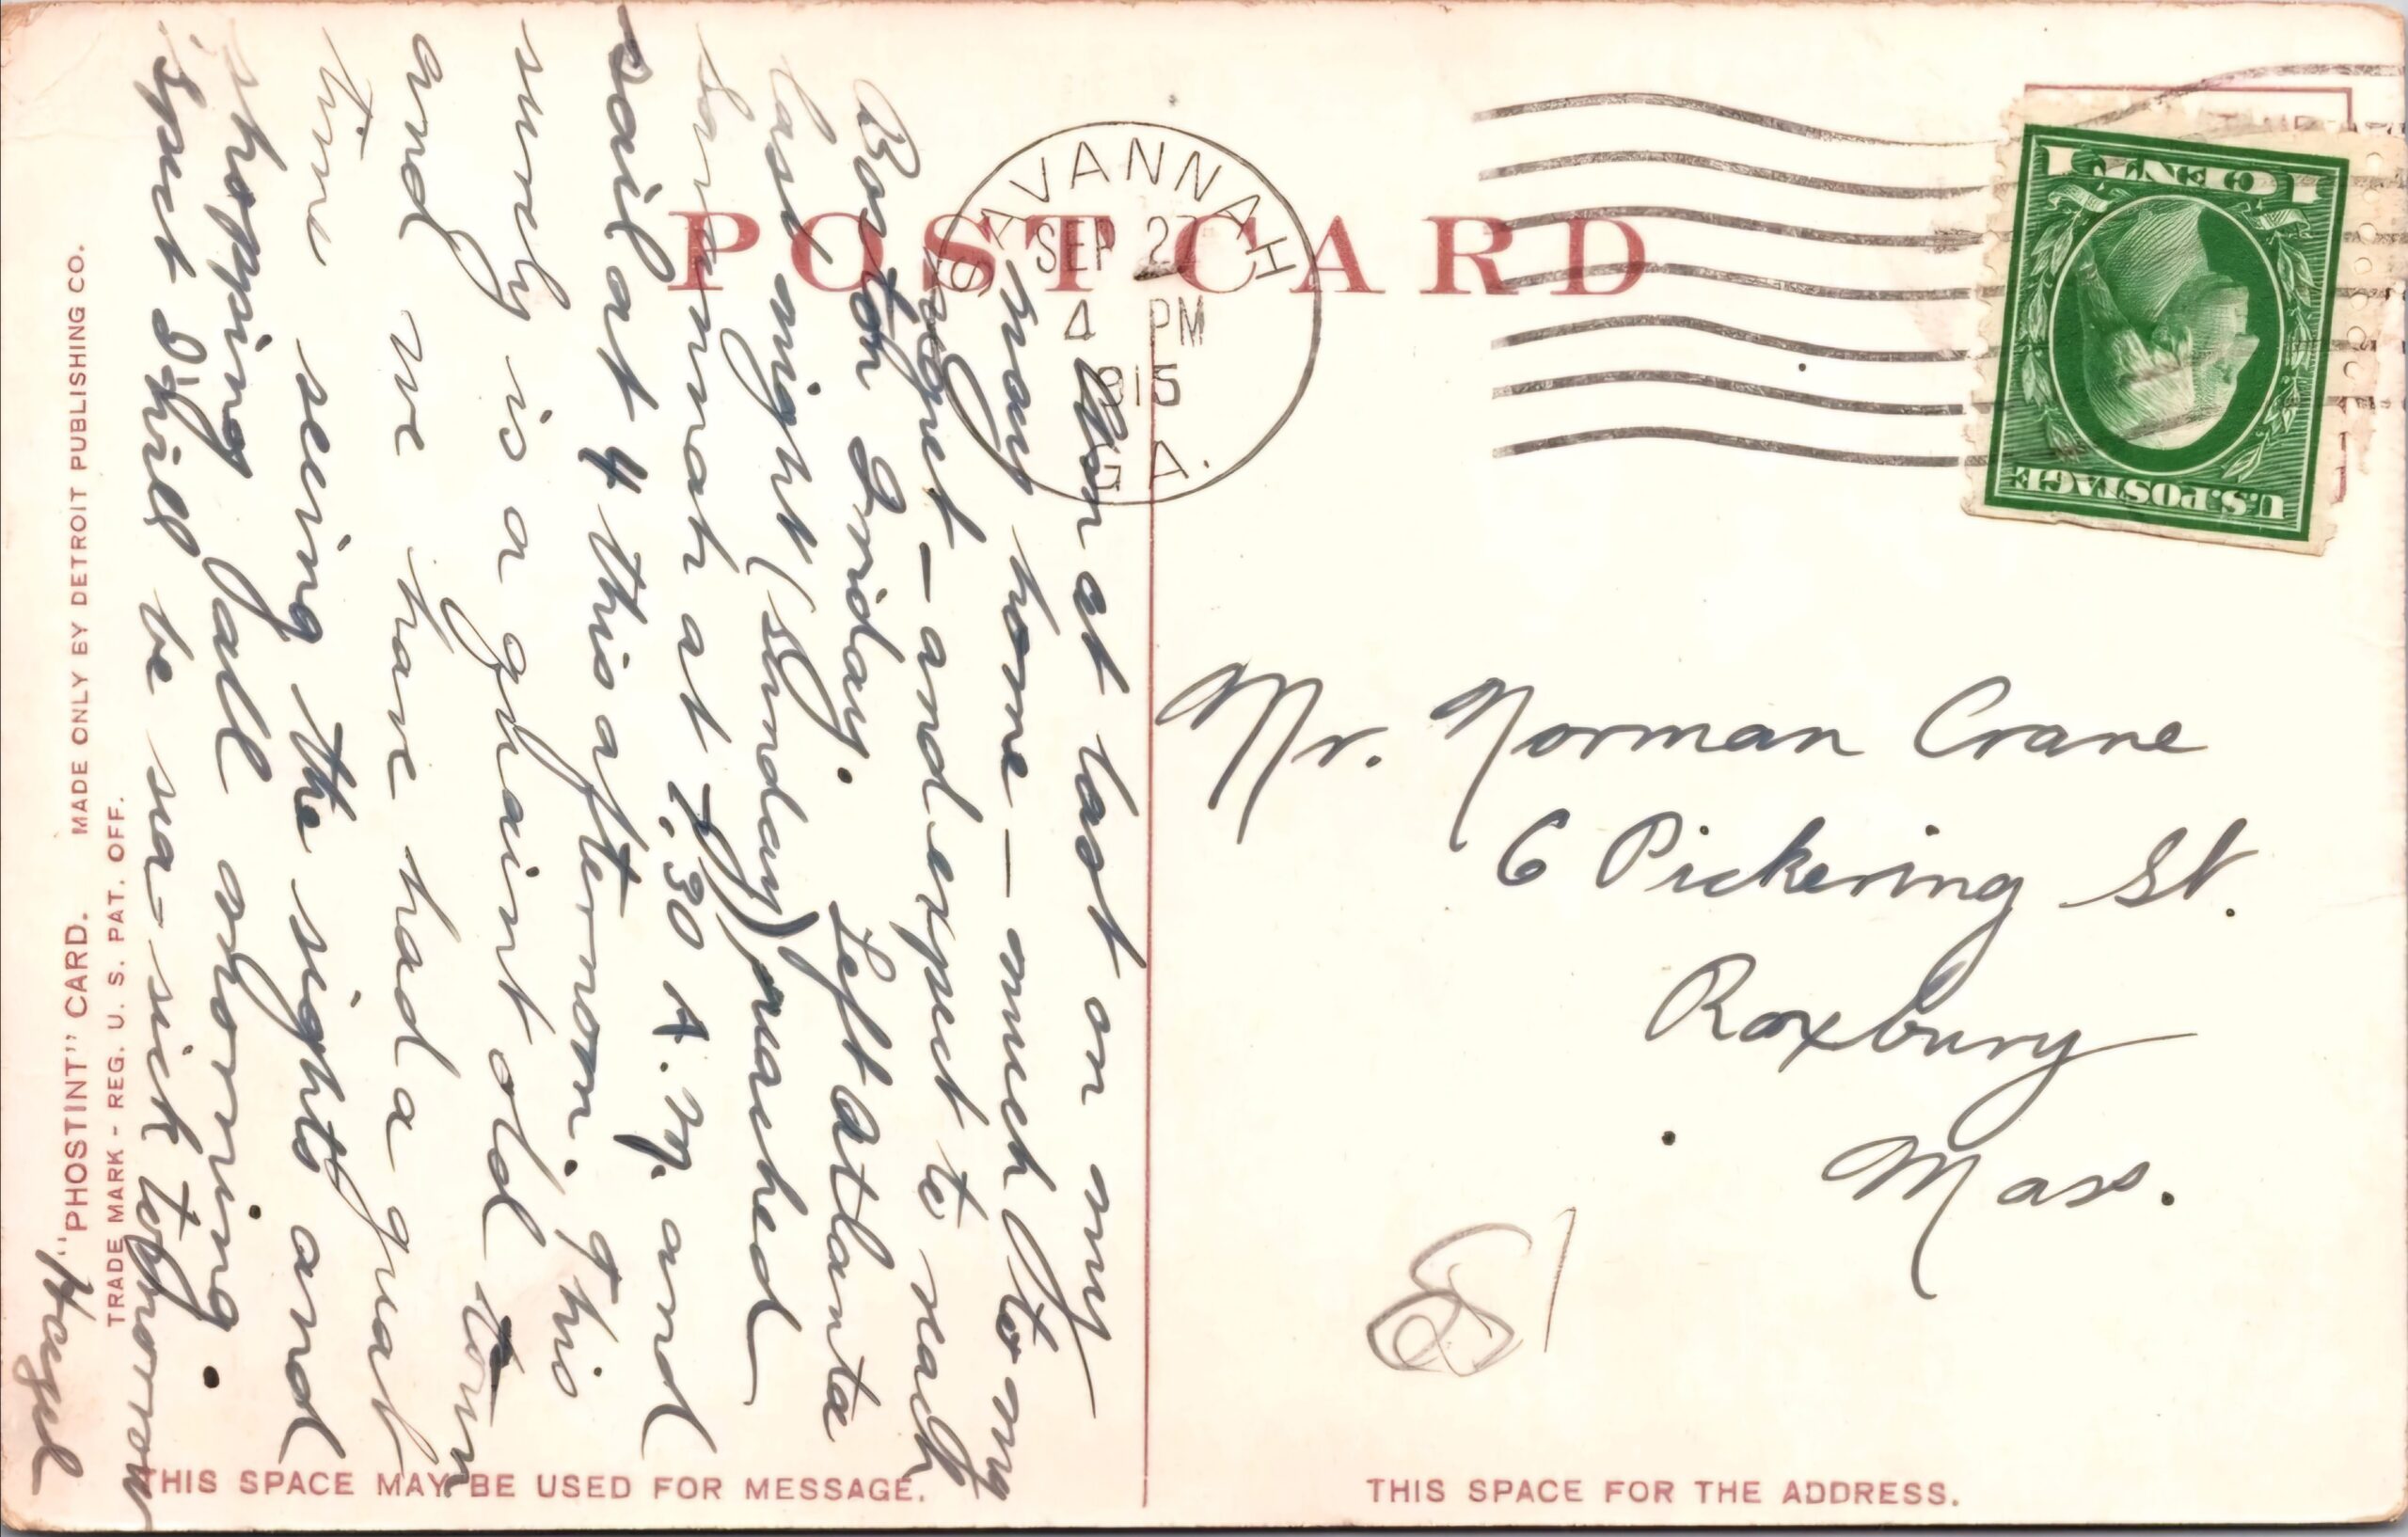 POST CARD
SAVANNAH
SEP 27
4 PM
1915
GA.
1 CENT 1
U.S.POSTAGE
Am at last on my
way home – much to my
regret – and expect to reach
Boston Friday. Left Atlanta
last night (Sunday) reached
Savannah at 7:30 A.M. and
sail at 4 this afternoon. This
surely is a qhaint old town
and we have had a great
time seeing the sights and
shopping all morning.
I spect I shall be sea-sick tomorrow
Hazel
Mr. Norman Crane
6 Pickering St.
Roxbury
Mass.
81
"PHOSTINT" CARD. MADE ONLY BY DETROIT PUBLISHING CO.
TRADE MARK - REG. U. S. PAT. OFF.
THIS SPACE MAY BE USED FOR MESSAGE.
THIS SPACE FOR THE ADDRESS.